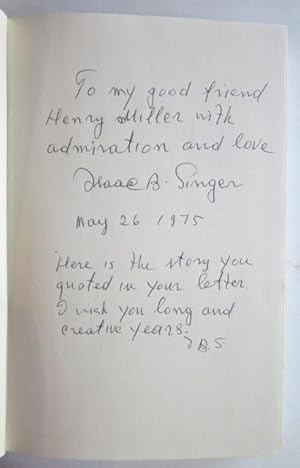 To my good friend
Henry Miller with
admiration and love
Isaac B. Singer
May 26 1975
Here is the story you
quoted in your letter.
I wish you long and
creative years.
I B S